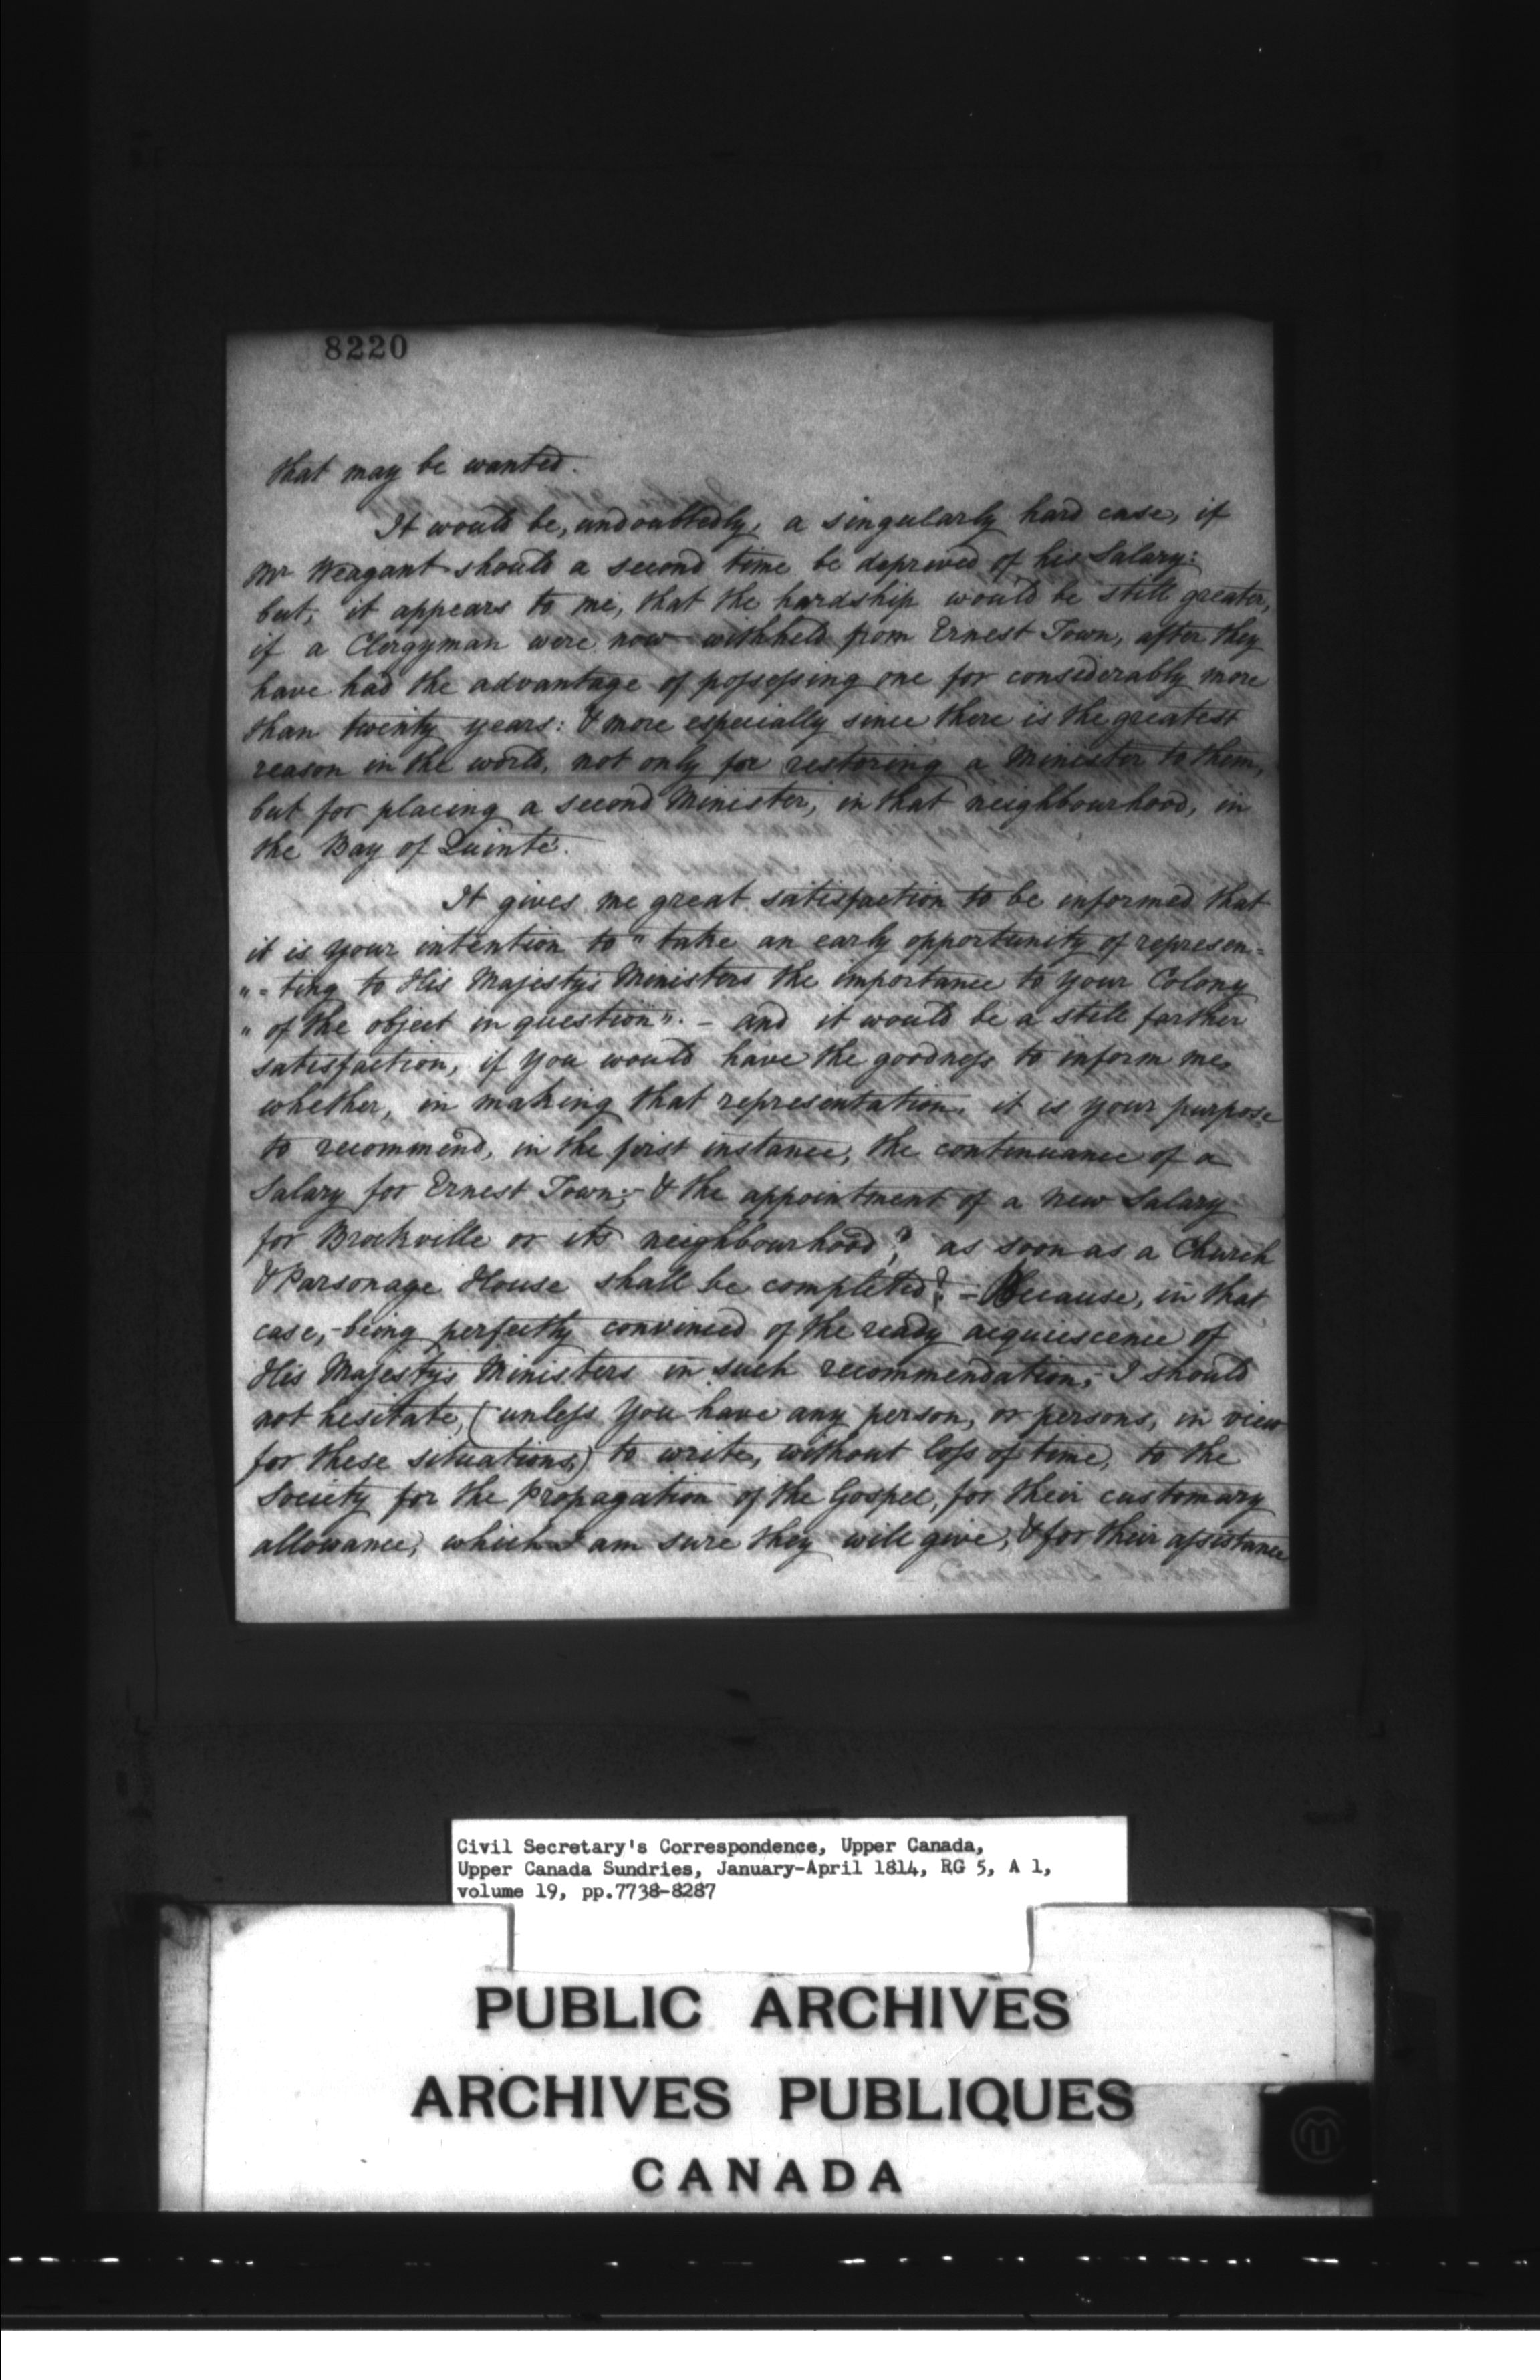 8220
that may be wanted.
It would be, undoubtedly, a singularly hard case, if
Mr Weagant should a second time be deprived of his Salary:
but, it appears to me, that the hardship would be still greater,
if a Clergyman were now withheld from Ernest Town, after they
have had the advantage of possessing one for considerably more
than twenty years: & more especially since there is the greatest
reason in the world, not only for restoring a Minister to them,
but for placing a second Minister, in that neighbourhood, in
the Bay of Quinté.
It gives me great satisfaction to be informed that
it is your intention to "take an early opportunity of represen=
"=ting to His Majesty's Ministers the importance to your Colony
"of the object in question". – and it would be a still farther
satisfaction, if you would have the goodness to inform me,
whether, in making that representation, it is your purpose
to recommend, in the first instance, the continuance of a
Salary for Ernest Town; & the appointment of a new Salary
for Brockville or its neighbourhood, as soon as a Church
& Parsonage House shall be completed? – Because, in that
case, – being perfectly convinced of the ready acquiescence of
His Majesty's Ministers in such recommendation, – I should
not hesitate, (unless you have any person, or persons, in view
for these situations,) to write, without loss of time, to the
Society for the Propagation of the Gospel, for their customary
allowance, which I am sure they will give, & for their assistance
Civil Secretary's Correspondence, Upper Canada,
Upper Canada Sundries, January-April 1814, RG 5, A 1,
volume 19, pp.7738-8287
PUBLIC ARCHIVES
ARCHIVES PUBLIQUES
CANADA